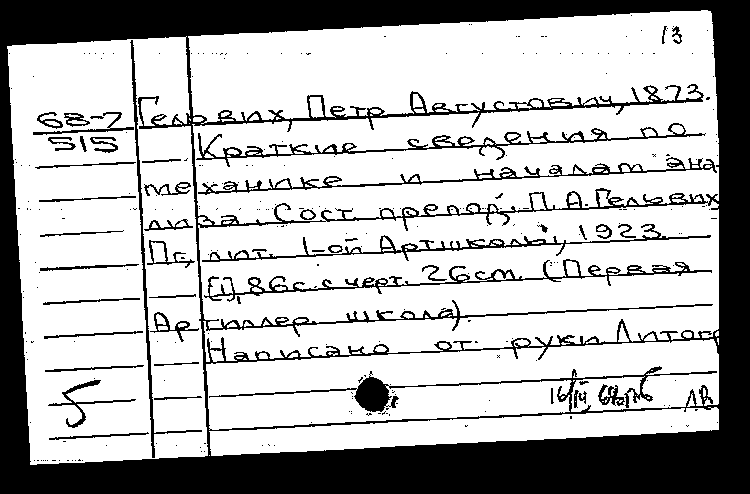 13
68-7 Гельвих, Петр Августович, 1873.
515 Краткие сведения по
механике и началам ана-
лиза. Сост. препод. П. А. Гельвих
Пг, лит. 1-ой Артшколы, 1923.
[1], 86с. с черт. 26см. (Первая
Артиллер. школа).
Написано от руки Литогр
5